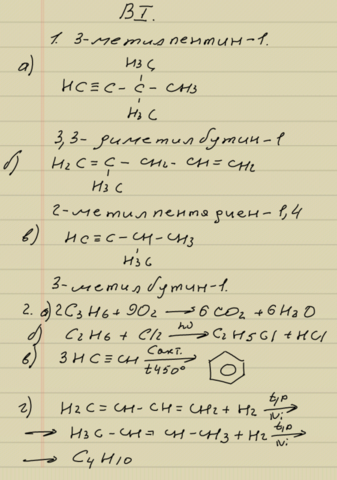 В I.
1. 3-метилпентин-1.
а)
H3C
HC≡C-C-CH3
H3C
3,3-диметилбутин-1
б) H2C=C-CH2-CH=CH2
H3C
2-метилпентадиен-1,4
в) HC≡C-CH-CH3
H3C
3-метилбутин-1.
2. а) 2C3H6+9O2→6CO2+6H2O
б) C2H6+Cl2 hν→ C2H5Cl+HCl
в) 3HC≡CH Cакт. t450°→
г) H2C=CH-CH=CH2+H2 t,p Ni→
→ H3C-CH=CH-CH3+H2 t,p Ni→
→ C4H10